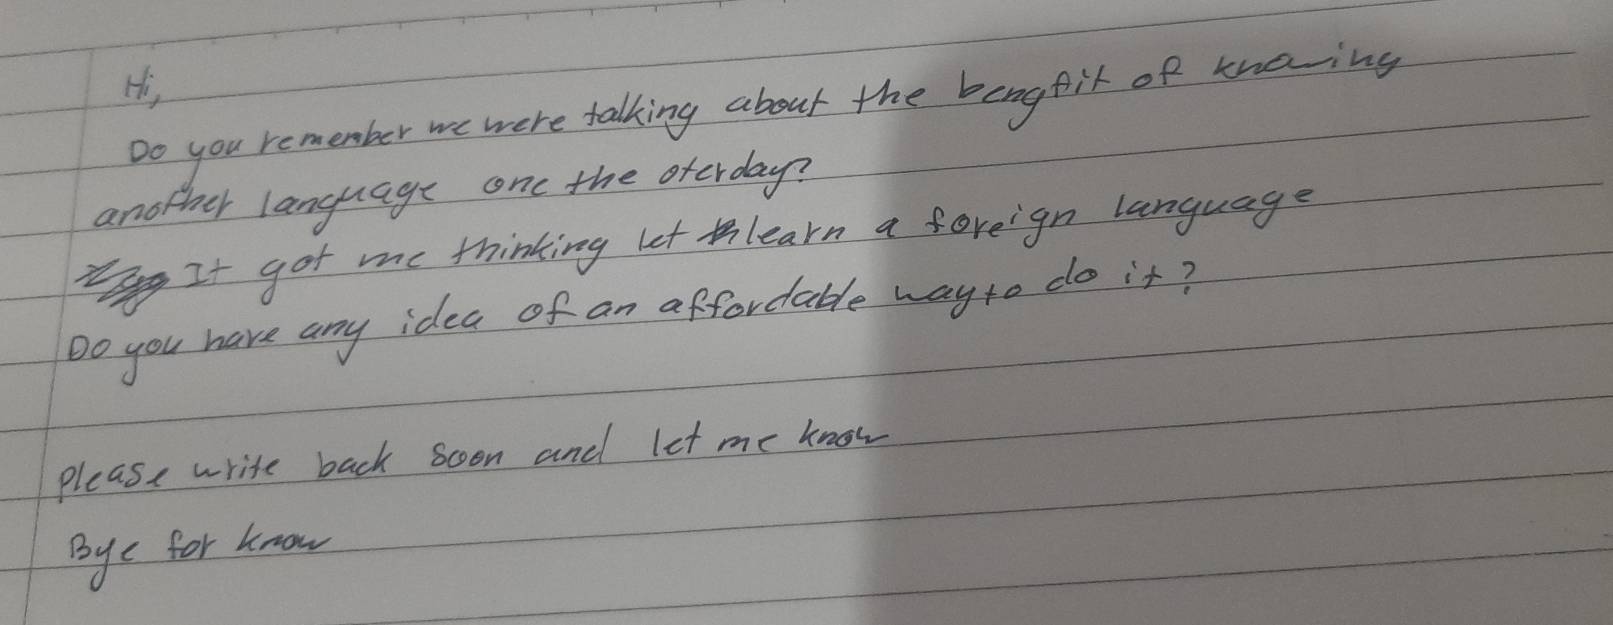 Hi,
Do you remember we were talking about the bengfit of knowing
another language one the oterday?
It got me thinking let learn a foreign language
Do you have any idea of an affordable way to do it?
please write back soon and let me know
Bye for know